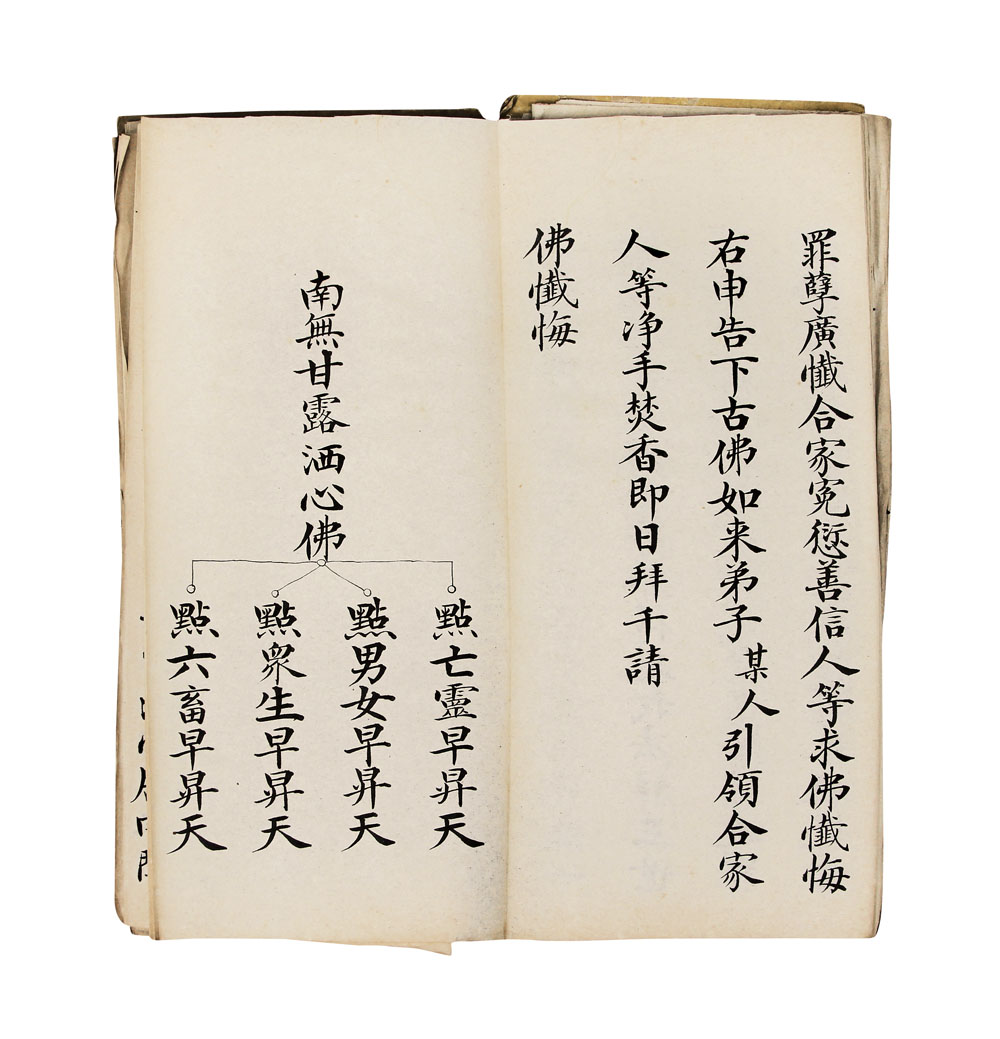 罪孽廣懺合家寃愆善信人等求佛懺悔
右申告下古佛如来弟子某人引領合家
人等净手焚香即日拜千請
佛懺悔
南無甘露洒心佛
點亡靈早昇天
點男女早昇天
點眾生早昇天
點六畜早昇天